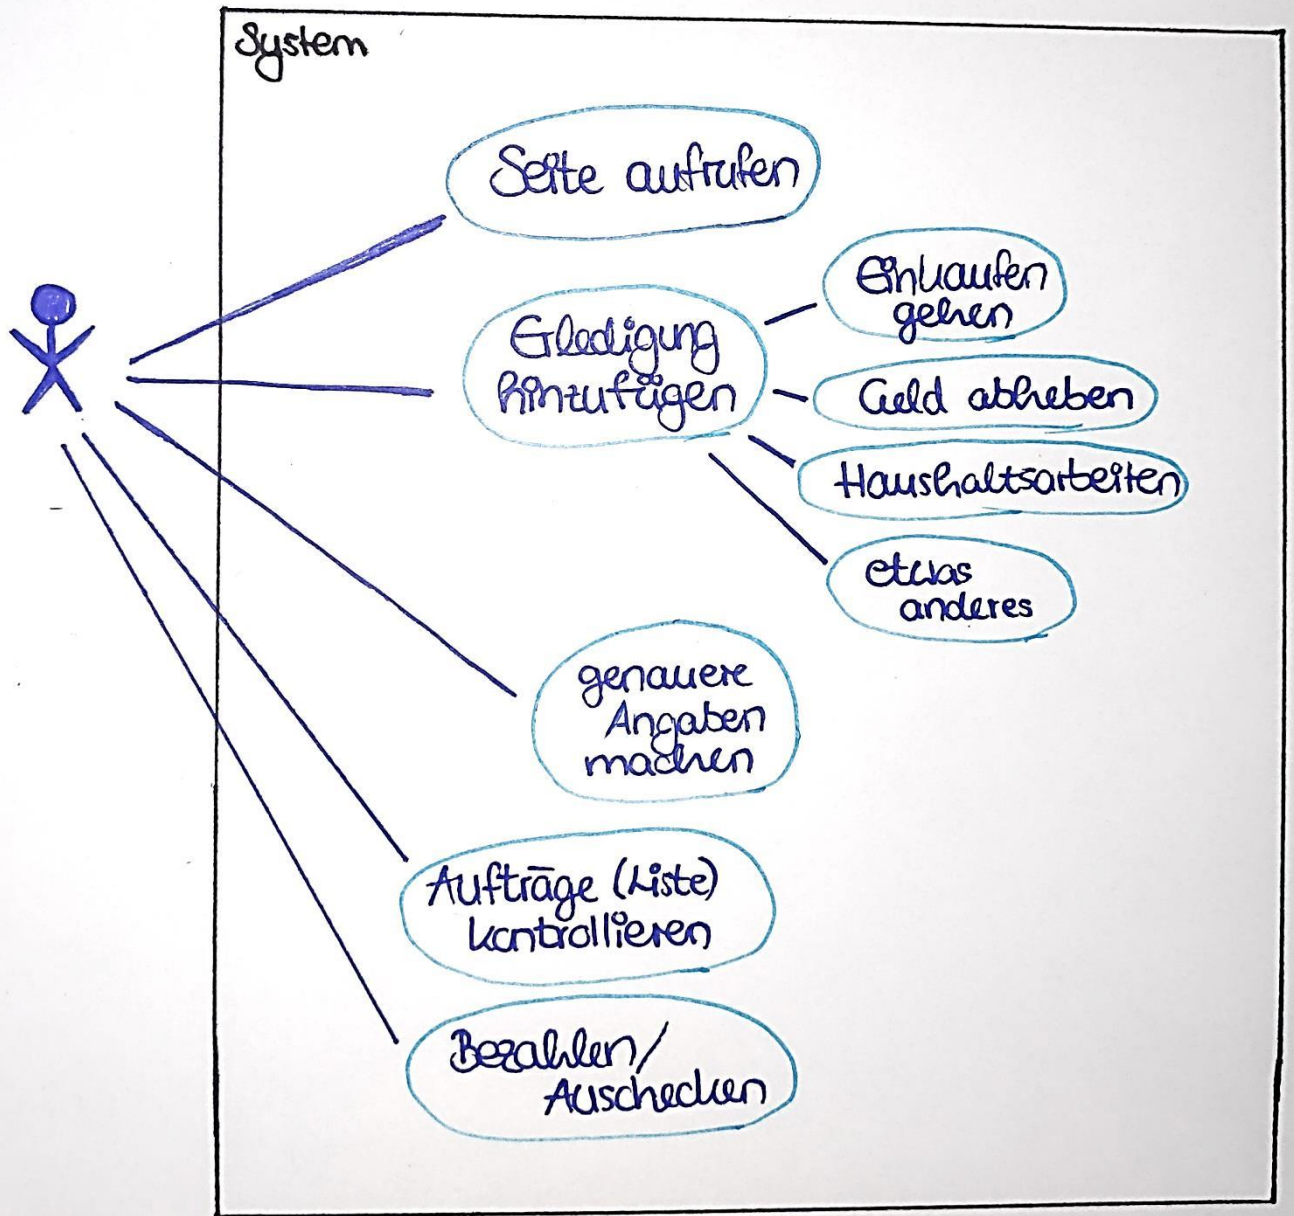 System
Seite aufrufen
Erledigung
hinzufügen
Einkaufen
gehen
Geld abheben
Haushaltsarbeiten
etwas
anderes
genauere
Angaben
machen
Aufträge (Liste)
kontrollieren
Bezahlen/
Auschecken